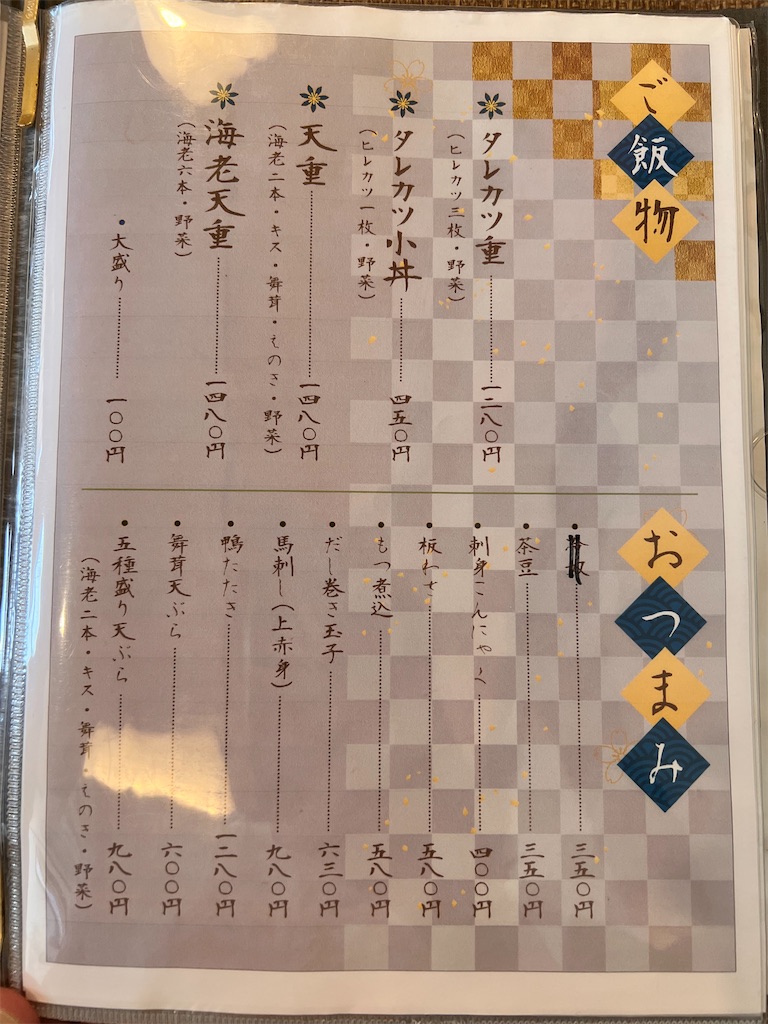 ご飯物
タレカツ重 一二八〇円
(ヒレカツ三枚・野菜)
タレカツ小丼 四五〇円
(ヒレカツ一枚・野菜)
天重 一四八〇円
(海老二本・キス・舞茸・えのき・野菜)
海老天重 一四八〇円
(海老六本・野菜)
・大盛り 一〇〇円
おつまみ
三五〇円
・茶豆 三五〇円
・刺身こんにゃく 四〇〇円
・板わさ 五八〇円
・もつ煮込 五八〇円
・だし巻き玉子 六三〇円
・馬刺し(上赤身) 九八〇円
・鴨たたき 一二八〇円
・舞茸天ぷら 六〇〇円
・五種盛り天ぷら 九八〇円
(海老二本・キス・舞茸・えのき・野菜)